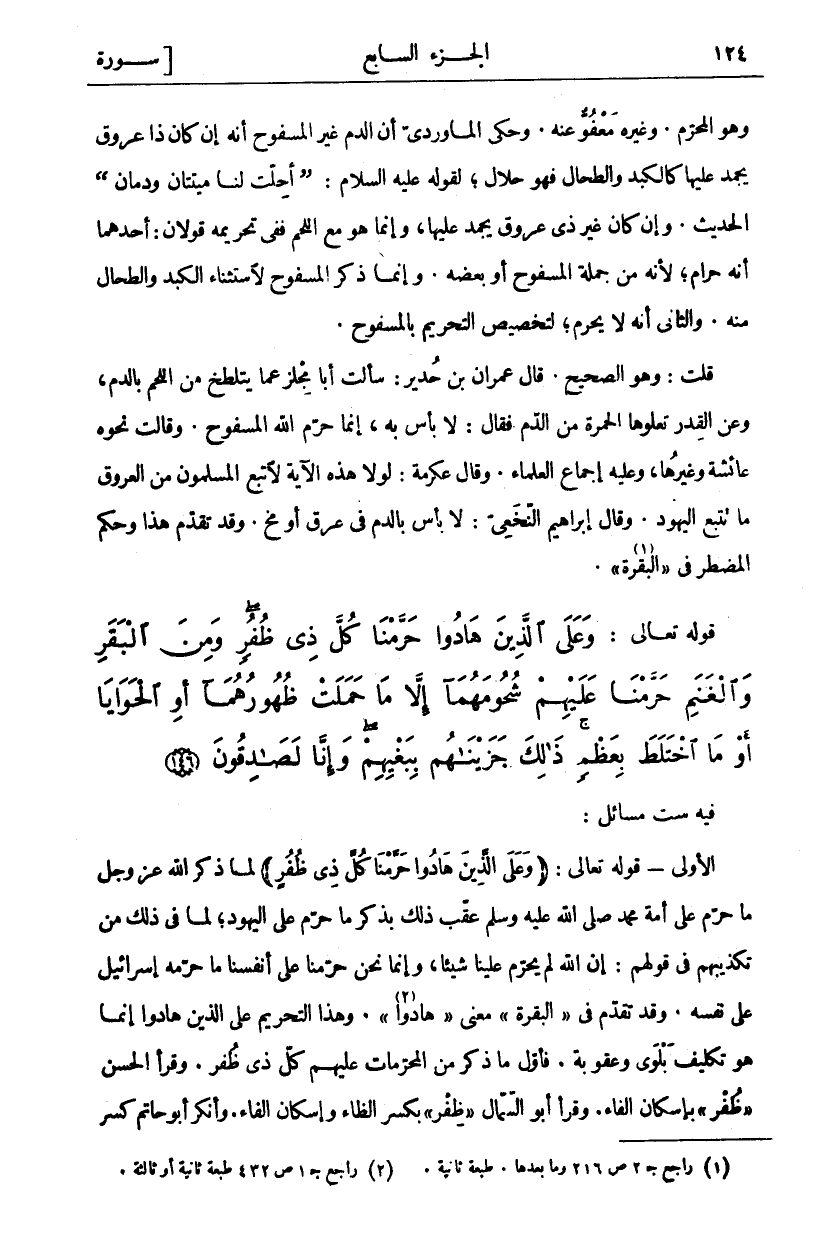 ١٢٤ الجزء السابع [ سورة
وهو المحرّم . وغيره مَعْفُوٌّ عنه . وحكى الماورديّ أن الدم غير المسفوح أنه إن كان ذا عروق
يجمد عليها كالكبد والطحال فهو حلال ؛ لقوله عليه السلام : ”أحِلّت لنا ميتتان ودمان“
الحديث . وإن كان غير ذى عروق يجمد عليها، وإنما هو مع اللحم ففى تحريمه قولان : أحدهما
أنه حرام؛ لأنه من جملة المسفوح أو بعضه . وإنما ذكر المسفوح لاستثناء الكبد والطحال
منه . والثانى أنه لا يحرم؛ لتخصيص التحريم بالمسفوح .
قلت : وهو الصحيح . قال عمران بن حُدير : سألت أبا مِجْلز عما يتلطخ من اللحم بالدم،
وعن القِدر تعلوها الحمرة من الدّم فقال : لا بأس به ، إنما حرّم الله المسفوح . وقالت نحوه
عائشة وغيرُها، وعليه إجماع العلماء . وقال عكرمة : لولا هذه الآية لاتبع المسلمون من العروق
ما تتبع اليهود . وقال إبراهيم النَّخَعِيّ : لا بأس بالدم فى عرق أو مخ . وقد تقدّم هذا وحكم
المضطر فى «البقرة»(١) .
قوله تعالى : وَعَلَى ٱلَّذِينَ هَادُوا حَرَّمْنَا كُلَّ ذِى ظُفُرٍۖ وَمِنَ ٱلْبَقَرِ
وَٱلْغَنَمِ حَرَّمْنَا عَلَيْهِمْ شُحُومَهُمَآ إِلَّا مَا حَمَلَتْ ظُهُورُهُمَآ أَوِ ٱلْحَوَايَا
أَوْ مَا ٱخْتَلَطَ بِعَظْمٍۚ ذَٰلِكَ جَزَيْنَـٰهُم بِبَغْيِهِمْۖ وَإِنَّا لَصَـٰدِقُونَ ﴿١٤٦﴾
فيه ست مسائل :
الأولى – قوله تعالى : ﴿ وَعَلَى الَّذِينَ هَادُوا حَرَّمْنَا كُلَّ ذِى ظُفُرٍ ﴾ لما ذكر الله عز وجل
ما حرّم على أمة محمد صلى الله عليه وسلم عقّب ذلك بذكر ما حرّم على اليهود؛ لما فى ذلك من
تكذيبهم فى قولهم : إن الله لم يحرّم علينا شيئا، وإنما نحن حرّمنا على أنفسنا ما حرّمه إسرائيل
على نفسه . وقد تقدّم فى « البقرة » معنى « هادُوا »(٢) . وهذا التحريم على الذين هادوا إنما
هو تكليف بَلْوَى وعقوبة . فأوّل ما ذكر من المحرّمات عليهم كلّ ذى ظُفر . وقرأ الحسن
«ظُفْر» بإسكان الفاء. وقرأ أبو السَّمّال «ظِفْر» بكسر الظاء وإسكان الفاء. وأنكر أبو حاتم كسر
(١) راجع جـ ٢ ص ٢١٦ وما بعدها . طبعة ثانية . (٢) راجع جـ ١ ص ٤٣٢ طبعة ثانية أو ثالثة .